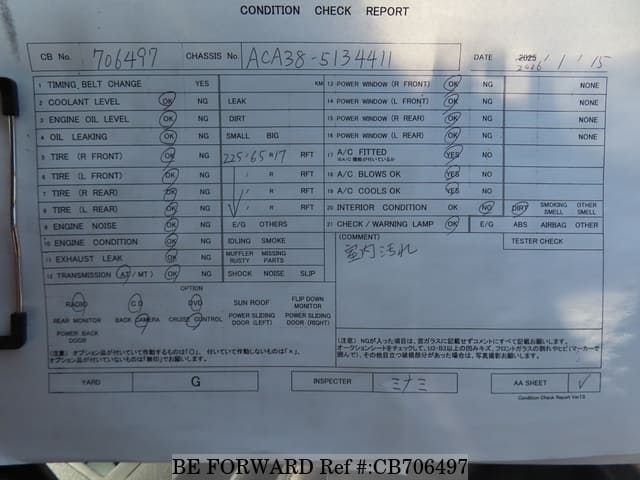 CONDITION CHECK REPORT
CB No. 706497 CHASSIS No. ACA38-5134411 DATE 2025 2026 / 1 / 15
1 TIMING BELT CHANGE YES KM 13 POWER WINDOW (R FRONT) OK NG NONE
2 COOLANT LEVEL OK NG LEAK 14 POWER WINDOW (L FRONT) OK NG NONE
3 ENGINE OIL LEVEL OK NG DIRT 15 POWER WINDOW (R REAR) OK NG NONE
4 OIL LEAKING OK NG SMALL BIG 16 POWER WINDOW (L REAR) OK NG NONE
5 TIRE (R FRONT) OK NG 225/65R17 RFT 17 A/C FITTED YES NO
※A/C機能が付いているか
6 TIRE (L FRONT) OK NG / R RFT 18 A/C BLOWS OK YES NO
7 TIRE (R REAR) OK NG / R RFT 19 A/C COOLS OK YES NO
8 TIRE (L REAR) OK NG / R RFT 20 INTERIOR CONDITION OK NG DIRT SMOKING SMELL OTHER SMELL
9 ENGINE NOISE OK NG E/G OTHERS 21 CHECK / WARNING LAMP OK E/G ABS AIRBAG OTHER
10 ENGINE CONDITION OK NG IDLING SMOKE (COMMENT) TESTER CHECK
11 EXHAUST LEAK OK NG MUFFLER RUSTY MISSING PARTS 室内汚れ
12 TRANSMISSION (AT / MT) OK NG SHOCK NOISE SLIP
OPTION
RADIO CD DVD SUN ROOF FLIP DOWN MONITOR
REAR MONITOR BACK CAMERA CRUISE CONTROL POWER SLIDING DOOR (LEFT) POWER SLIDING DOOR (RIGHT)
POWER BACK DOOR
(注意) オプション品が付いていて作動するものは「○」、付いていて作動しないものは「×」、
オプション品が付いていないものは「無印」でお願いします。
(注意) NGが入った項目は、窓ガラスに記載せずコメントにすべて記載お願いします。
オークションシートをチェックして、U3・B3以上の凹みキズ、フロントガラスの割れやヒビ(マーカーで
囲んで)、その他目立つ破損部分があった場合は、写真撮影お願いします。
YARD G INSPECTER ミナミ AA SHEET ✓
Condition Check Report Ver7.5
BE FORWARD Ref #:CB706497